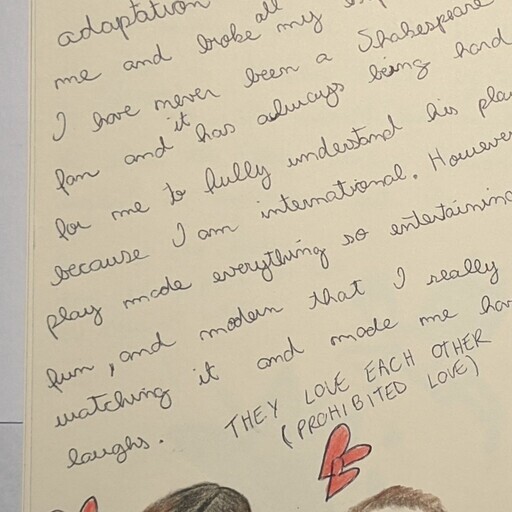 adaptation
me and broke all my
I have never been a Shakespeare
fan and it has always being hard
for me to fully understand his
because I am international. However
play made everything so entertaining
fun, and modern that I really
watching it and made me
laughs.
THEY LOVE EACH OTHER
(PROHIBITED LOVE)